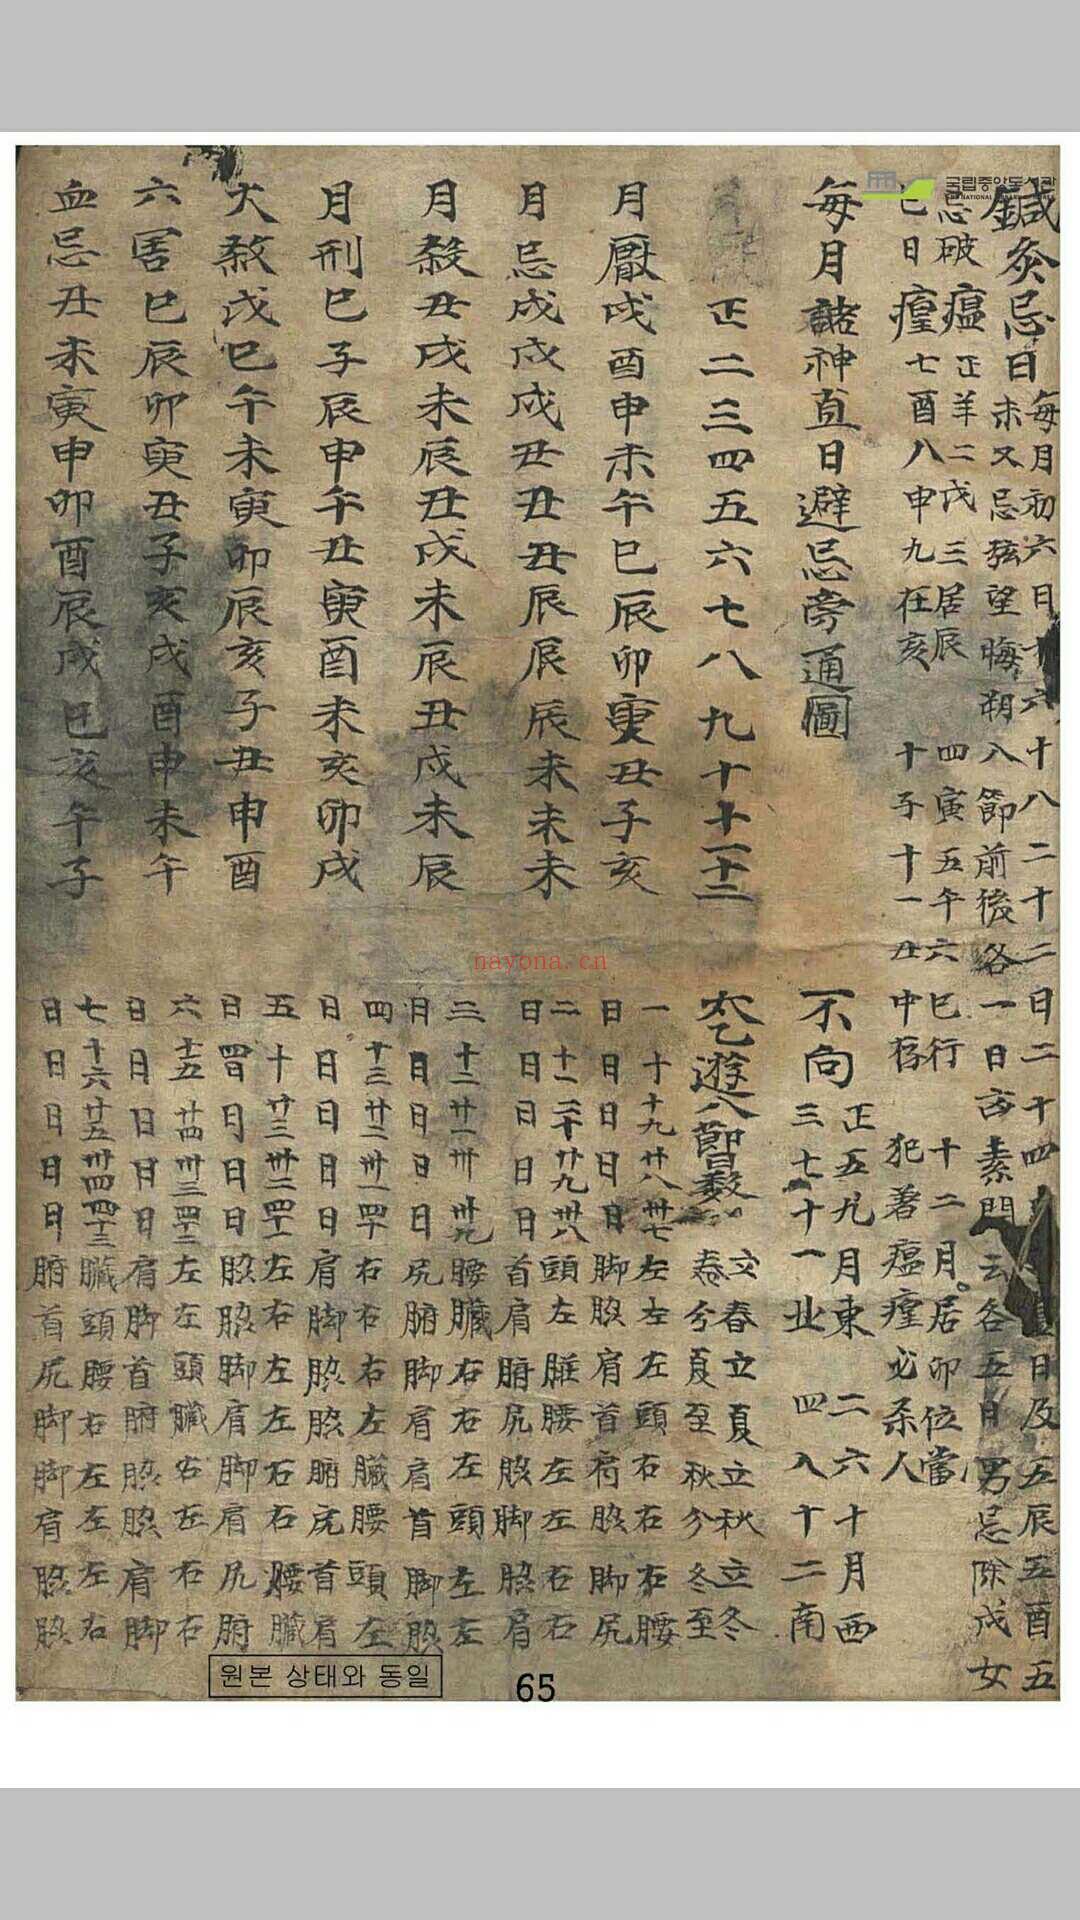 국립중앙도서관
THE NATIONAL LIBRARY OF KOREA
鍼灸忌日
每月初六日十六十八二十二日二十四
日及五辰五酉五
未又忌弦望晦朔八節前後各一日 素問云各五日男忌除戌女
忌破瘟正羊二戌三居辰四寅五午六巳行十二月居卯位當
巳日瘟七酉八申九在亥十子十一丑中存犯著瘟瘟必杀人
每月諸神直日避忌旁通圖
不向
正五九月東二六十月西
三七十一北四八十二南
正二三四五六七八九十十一十二
月厭戌酉申未午巳辰卯寅丑子亥
月忌戌戌戌丑丑丑辰辰辰未未未
月殺丑戌未辰丑戌未辰丑戌未辰
月刑巳子辰申午丑寅酉未亥卯戌
大煞戌巳午未寅卯辰亥子丑申酉
六害巳辰卯寅丑子亥戌酉申未午
血忌丑未寅申卯酉辰戌巳亥午子
太乙遊八節日數
立春立夏立秋立冬
春分夏至秋分冬至
一十十九廿八卅七左左左頭右右右腰
日日日日日脚脇肩首肩脇脚尻
二十一二十廿九卅八頭左腰左左右右
日日日日首肩腑尻脇脚脇肩
三十二廿一卅卅九腰臟右右左頭左左
日日日日日尻腑脚肩肩首脚脇
四十三廿二卅一四十右右右左臟腰頭左
日日日日日肩脚脇脇腑尻首肩
五十廿三卅二四十一左右左左右右腰臟
日四日日日日脇脇脚肩脚肩尻腑
六十五廿四卅三四十二左左頭臟右左右右
日日日日日肩脚首腑脇脇肩脚
七十六廿五卅四四十三臟頭腰右左左左右
日日日日日腑首尻脚脚肩脇脇
nayona.cn
원본 상태와 동일
65